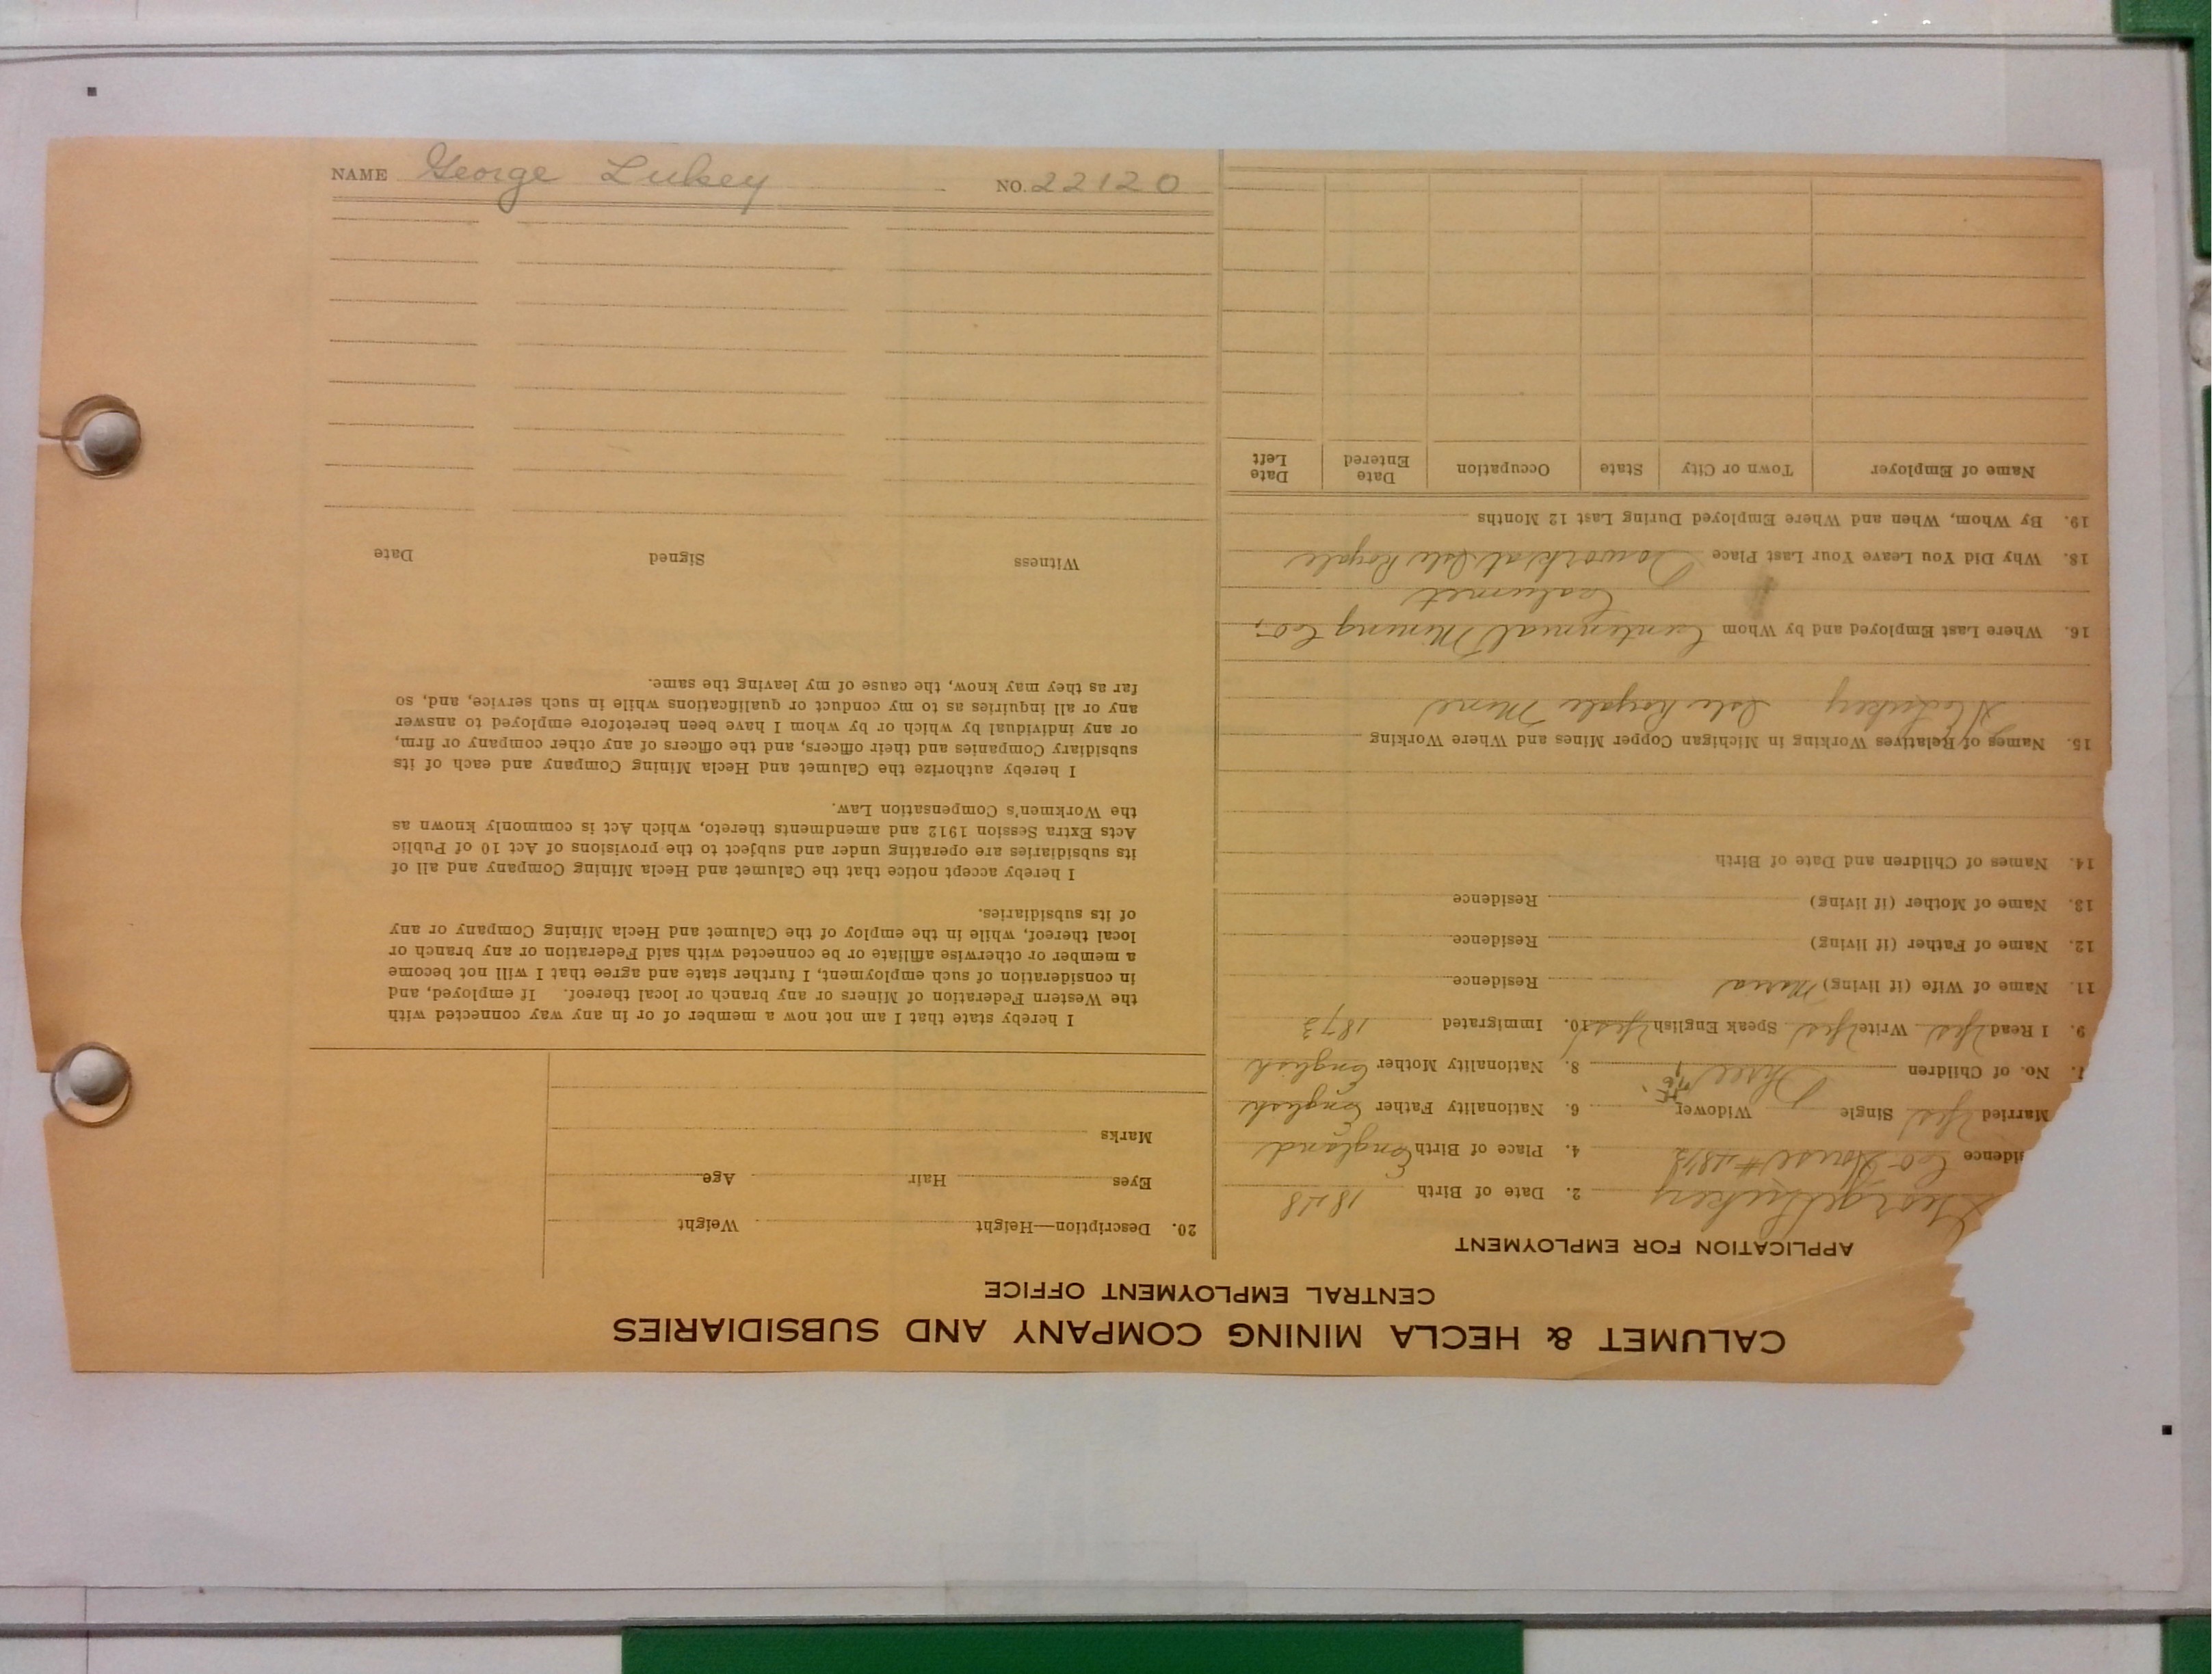 NAME George Lukey NO. 22120
CALUMET & HECLA MINING COMPANY AND SUBSIDIARIES
CENTRAL EMPLOYMENT OFFICE
APPLICATION FOR EMPLOYMENT
George Lukey 2. Date of Birth 1848
sidence Co House # 4. Place of Birth England
Married Yes Single Widower 6. Nationality Father English
No. of Children Three 8. Nationality Mother English
9. I Read Yes Write Yes Speak English Yes 10. Immigrated 1873
11. Name of Wife (if living) Maria Residence
12. Name of Father (if living) Residence
13. Name of Mother (if living) Residence
14. Names of Children and Date of Birth
15. Names of Relatives Working in Michigan Copper Mines and Where Working
Lukey Isle Royale Mine
16. Where Last Employed and by Whom Centennial Mining Co.,
Calumet
18. Why Did You Leave Your Last Place To work at Isle Royale
19. By Whom, When and Where Employed During Last 12 Months
Name of Employer Town or City State Occupation Date Entered Date Left
20. Description—Height Weight
Eyes Hair Age
Marks
I hereby state that I am not now a member of or in any way connected with
the Western Federation of Miners or any branch or local thereof. If employed, and
in consideration of such employment, I further state and agree that I will not become
a member or otherwise affiliate or be connected with said Federation or any branch or
local thereof, while in the employ of the Calumet and Hecla Mining Company or any
of its subsidiaries.
I hereby accept notice that the Calumet and Hecla Mining Company and all of
its subsidiaries are operating under and subject to the provisions of Act 10 of Public
Acts Extra Session 1912 and amendments thereto, which Act is commonly known as
the Workmen's Compensation Law.
I hereby authorize the Calumet and Hecla Mining Company and each of its
subsidiary Companies and their officers, and the officers of any other company or firm,
or any individual by which or by whom I have been heretofore employed to answer
any or all inquiries as to my conduct or qualifications while in such service, and, so
far as they may know, the cause of my leaving the same.
Witness Signed Date